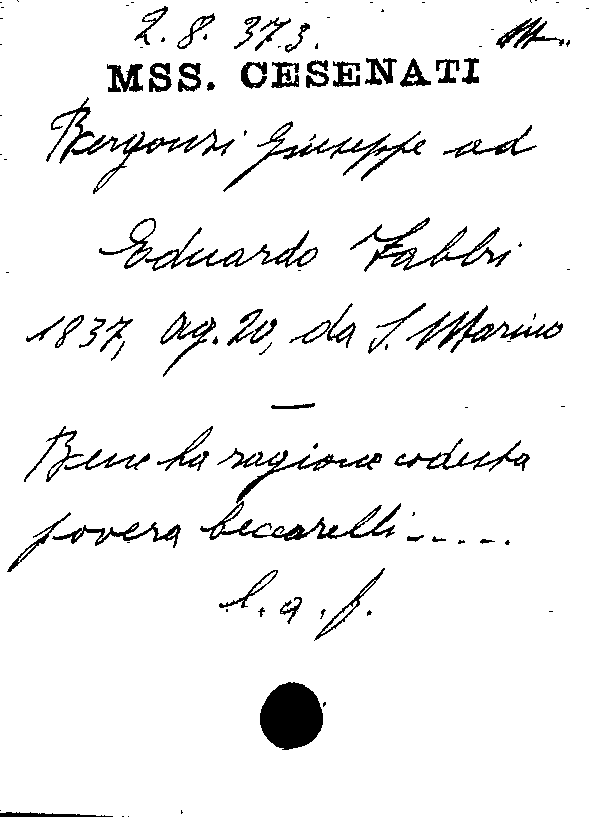 2.8.373. M..
MSS. CESENATI
Bergonzi Giuseppe ad
Eduardo Fabbri
1837, ag. 20, da S. Marino
—
Bene ha ragione codesta
povera beccarelli.....
l. a. f.